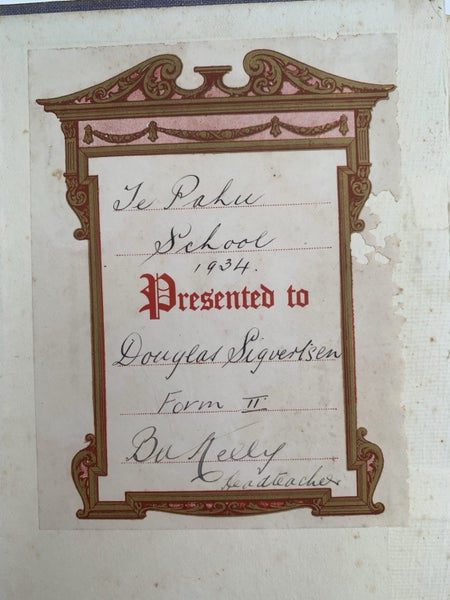 Te Pahu
School
1934.
Presented to
Douglas Sigvertsen
Form II
Kelly
Headteacher